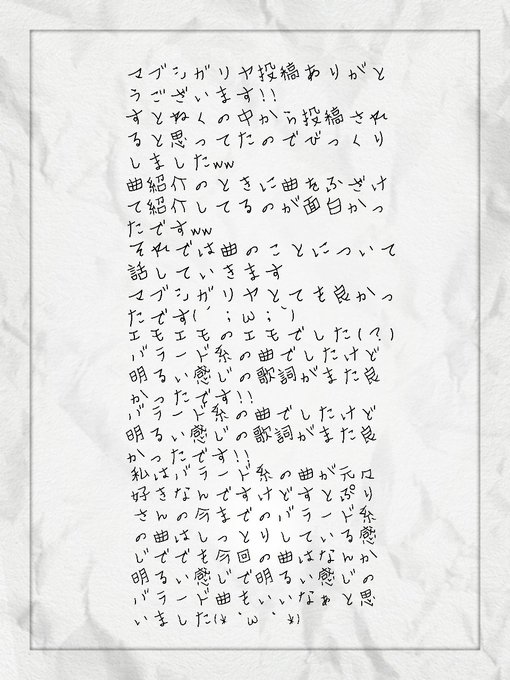 マブシガリヤ投稿ありがと
うございます!!
すとぬくの中から投稿され
ると思ってたのでびっくり
しましたww
曲紹介のときに曲をふざけ
て紹介してるのが面白かっ
たですww
それでは曲のことについて
話していきます
マブシガリヤとても良かっ
たです(´;ω;`)
エモエモのエモでした(?)
バラード系の曲でしたけど
明るい感じの歌詞がまた良
かったです!!
バラード系の曲でしたけど
明るい感じの歌詞がまた良
かったです!!
私はバラード系の曲が元々
好きなんですけどすとぷり
さんの今までのバラード系
の曲はしっとりしている感
じででも今回の曲はなんか
明るい感じで明るい感じの
バラード曲もいいなぁと思
いました(*´ω`*)